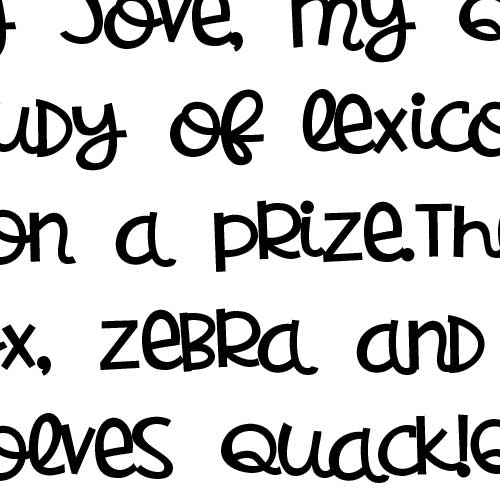 Jove, my
udy of lexico
on a prize.The
x, zebra and
olves quack!